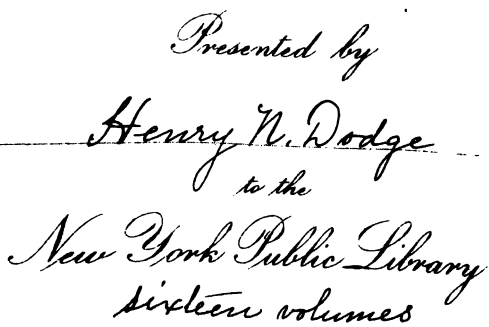 Presented by
Henry N. Dodge
to the
New York Public Library
sixteen volumes